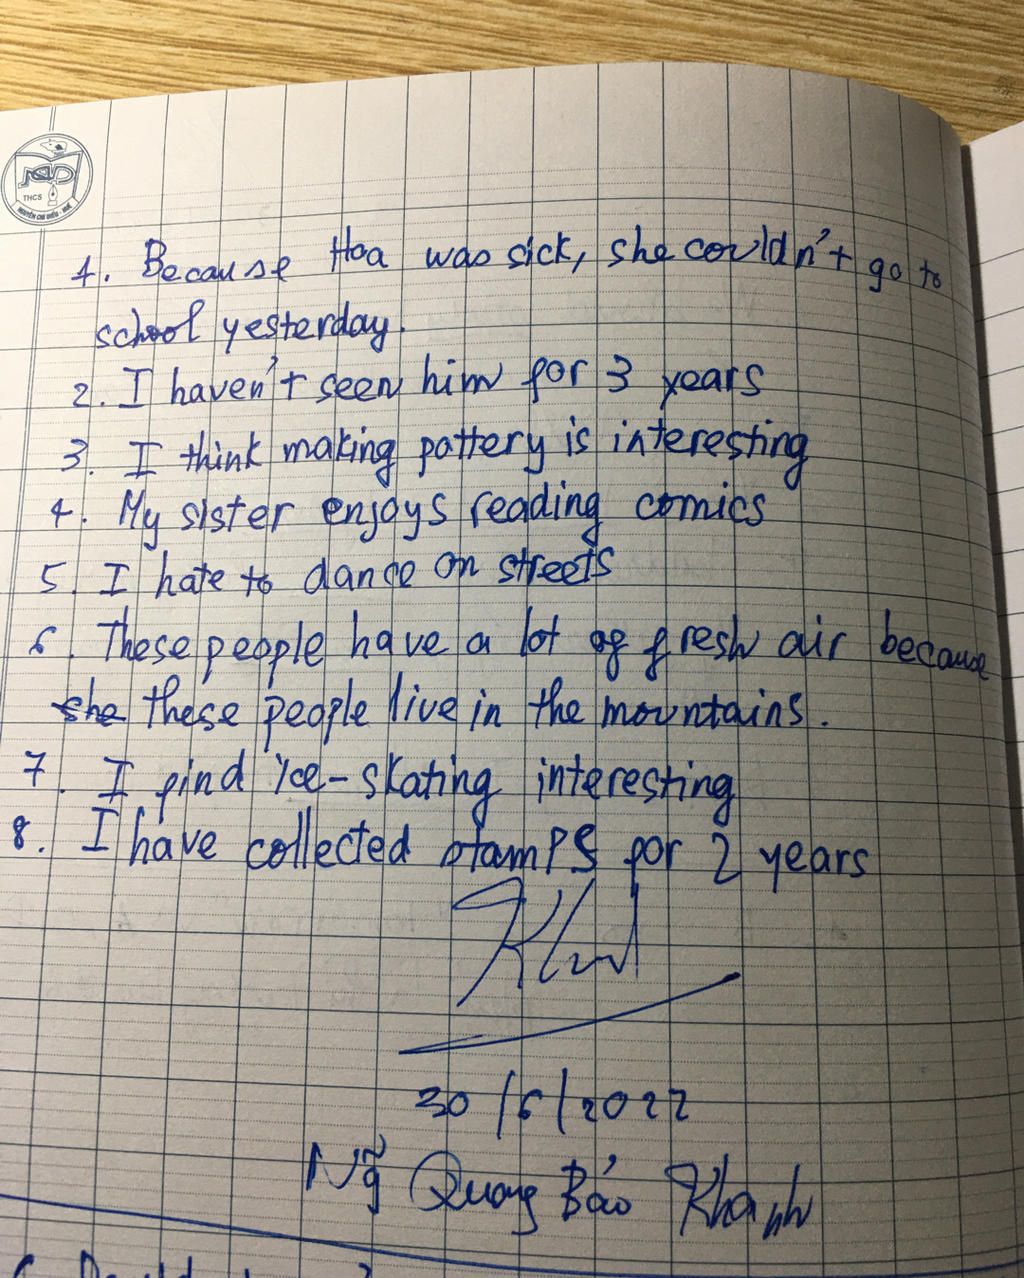 THCS
NGUYỄN CHÍ DIỂU - HUẾ
1. Because Hoa was sick, she couldn't go to
school yesterday.
2. I haven't seen him for 3 years
3. I think making pattery is interesting
4. My sister enjoys reading comics
5. I hate to dance on streets
6. These people have a lot of fresh air because
she these people live in the mountains.
7. I find ice-skating interesting
8. I have collected stamps for 2 years
30/6/2022
Ng̃ Quang Bảo Khanh